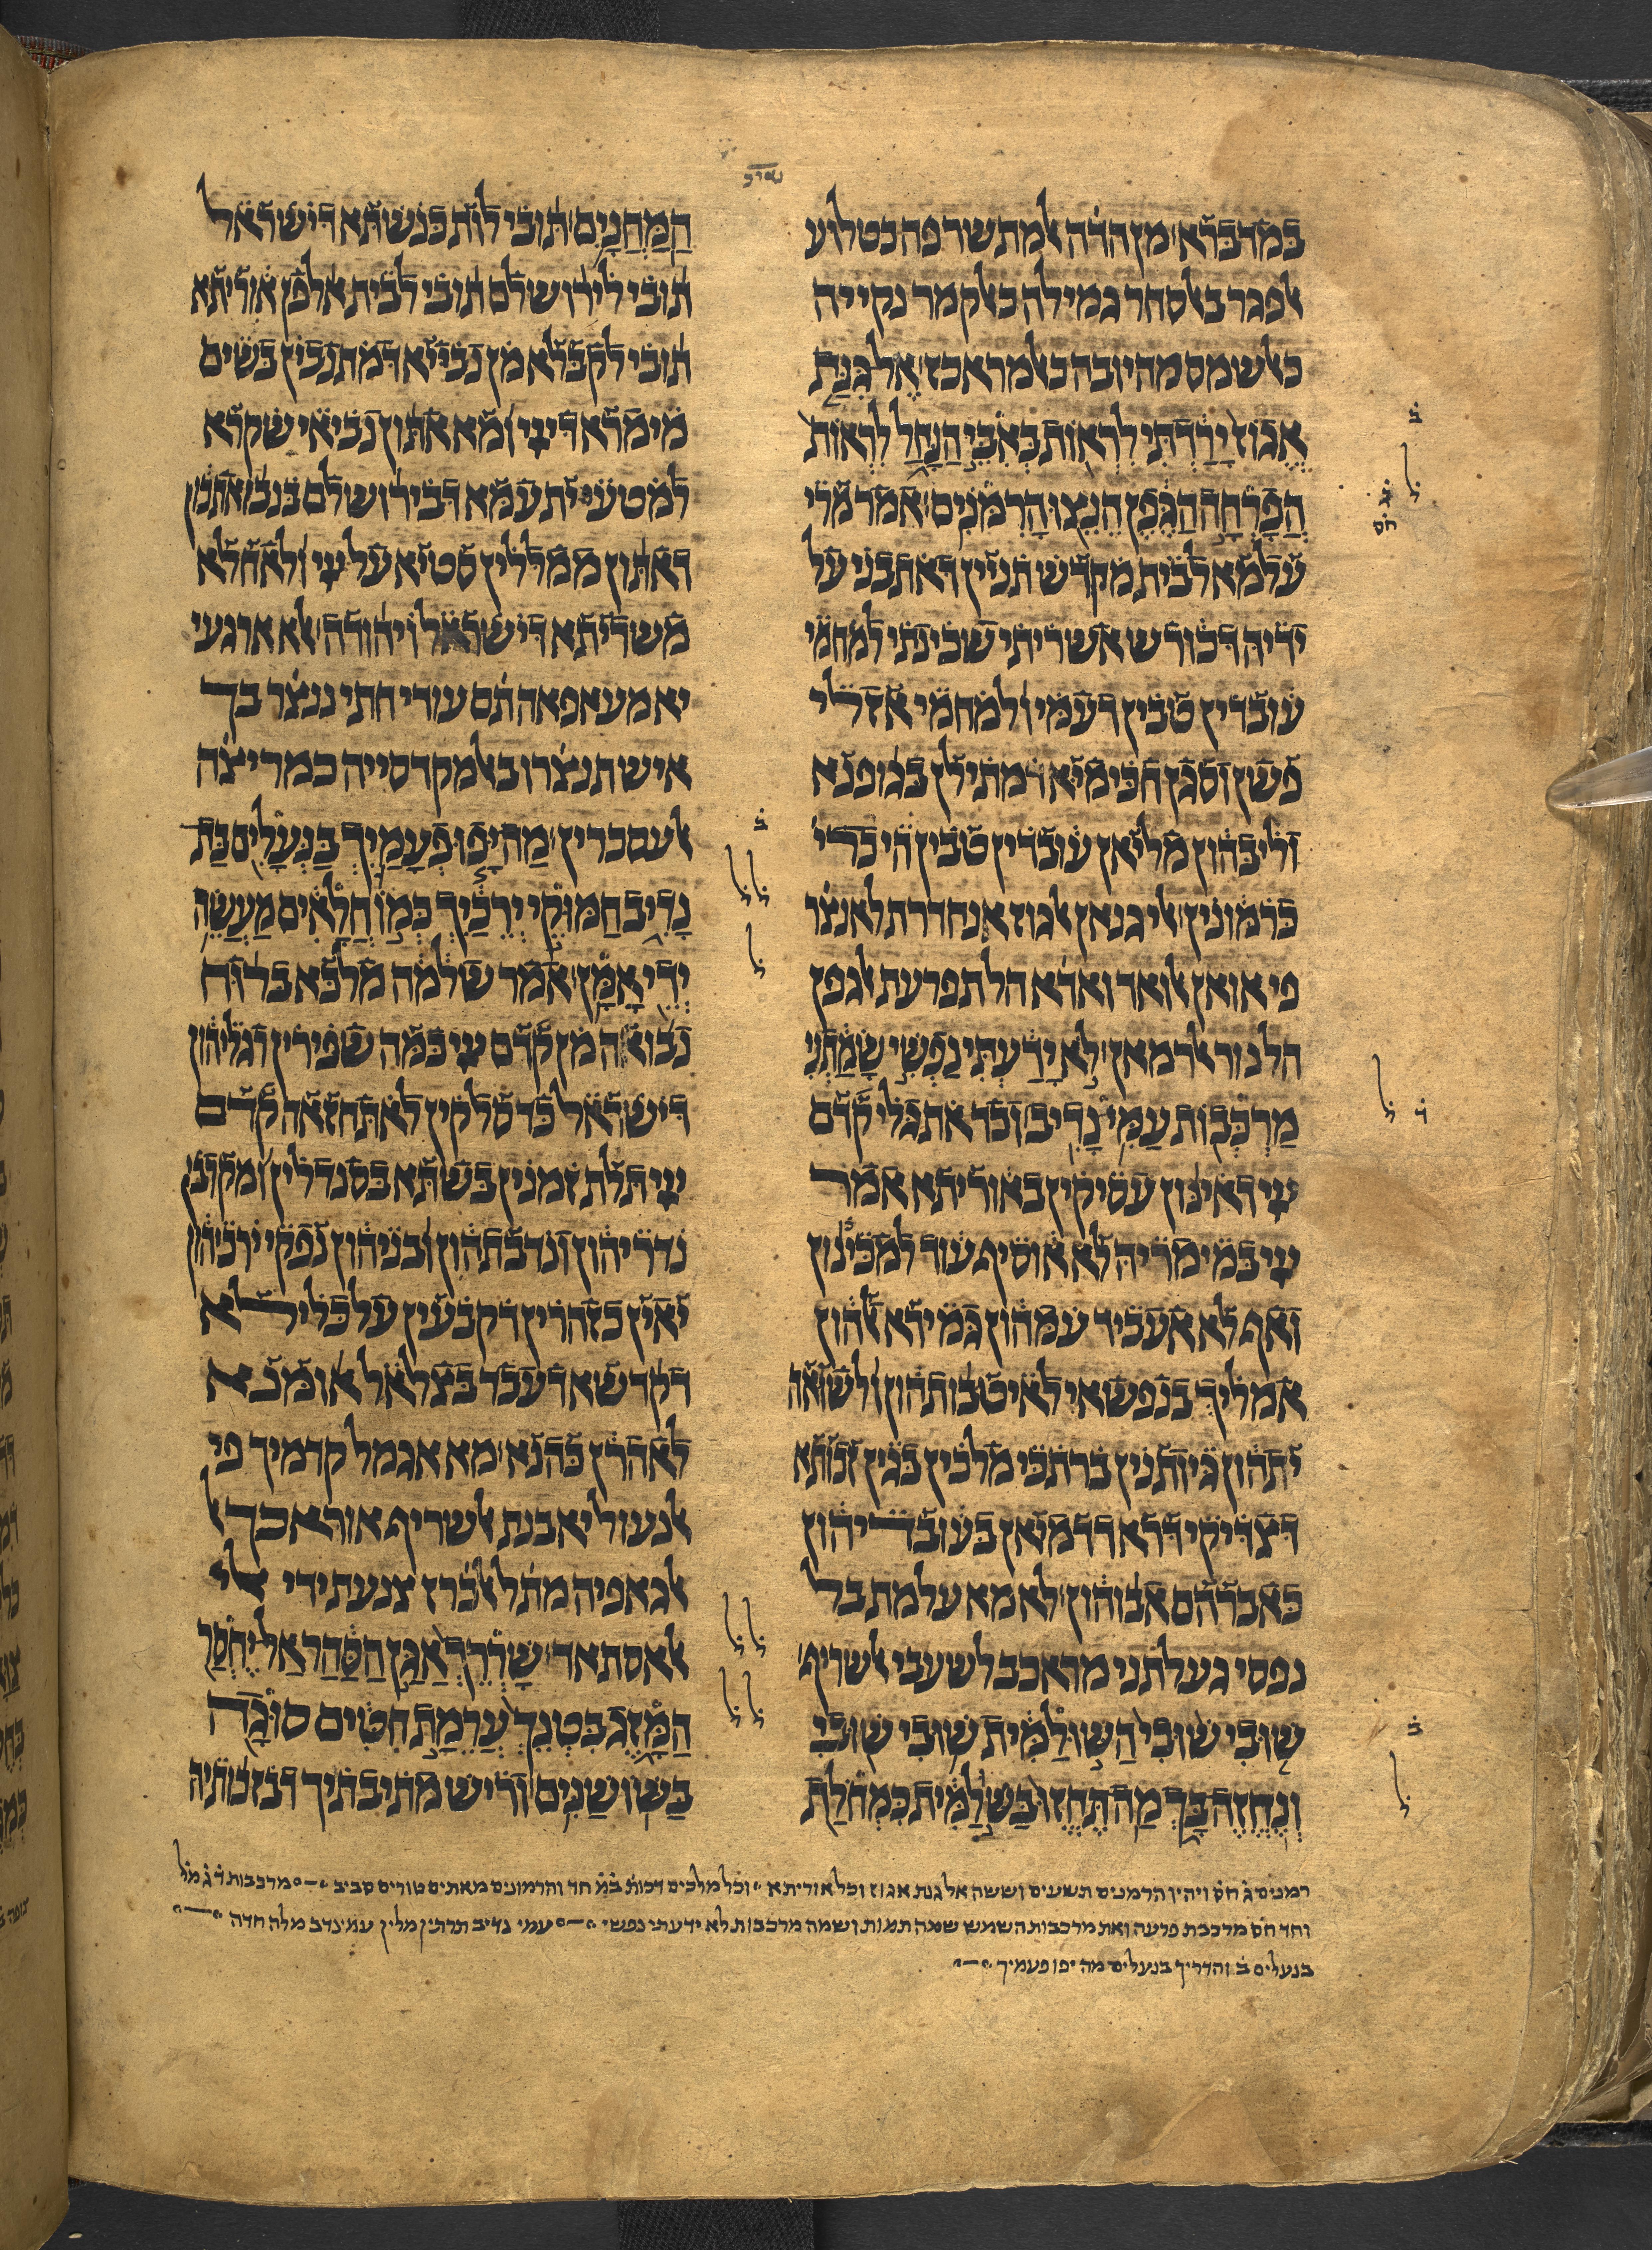 במדברא מן הדה אלמתשרפה כטלוע
אלפגר באלסחר גמילה כאלקמר נקייה
כאלשומס מהיובה כאלמראכז אל גנת
אֱגוֹז יָרַדְתִּי לִרְאוֹת בְּאִבֵּי הַנָּחַל לִרְאוֹת
הֲפָרְחָה הַגֶּפֶן הֵנֵצוּ הָרִמֹּנִים אמר מרי
עלמא לבית מקדש תניין דאתבני על
ידיה דכורש אשריתי שכינתי למחמי
עובדין טבין דעמי ולמחמי אן
פשן וסגן חכימיא דמתילן בגופנא
ולבהון מליאן עובדין טבין הי כדי
כרמונין אלי גנאן אלגוז אנחדרת לאנצר
פי אואן אלואד ואדא הל תפרעת אלגפן
הל נור אלרמאן לֹא יָדַעְתִּי נַפְשִׁי שָׂמַתְנִי
מַרְכְּבוֹת עַמִּי נָדִיב וכד אתגלי קדם
ייי דאינון עסיקין באוריתא אמר
ייי במימריה לא אוסיף עוד למכינון
ואף לא אעביד עמהון גמירא אלהון
אמליך בנפשאי לאיטבותהון ולשואה
יתהון גיותנין ברתכי מלכין בגין זכותא
דצדיקי דרא דדמיאן בעובדיהון
באברהם אבוהון לא מא עלמת בל
נפסי געלתני מראכב לשעבי אלשריף
שׁוּבִי שׁוּבִי הַשּׁוּלַמִּית שׁוּבִי שׁוּבִי
וְנֶחֱזֶה בָּךְ מַה תֶּחֱזוּ בַּשֻּׁלַמִּית כִּמְחֹלַת
הַמַּחֲנָיִם תובי לות כנשתא דישראל
תובי לירושלם תובי לבית אלפן אוריתא
תובי לקבלא מן נבייא דמתנבין בשים
מימרא דייי ומא אתון נביאי שקרא
למטעי ית עמא דבירושלם
דאתון ממללין סטיא על ייי ולאחלא
משריתא דישראל ויהודה אלא ארגעי
יא מעאפאה תם עודי חתי ננצר בך
איש תנצרו באלמקדסייה כמריצה
אלעסכרין מַה יָּפוּ פְעָמַיִךְ בַּנְּעָלִים בַּת
נָדִיב חַמּוּקֵי יְרֵכַיִךְ כְּמוֹ חֲלָאִים מַעֲשֵׂה
יְדֵי אָמָּן אמר שלמה מלכא ברוח
נבואה מן קדם ייי כמה שפירין רגליהון
דישראל כד סלקין לאתחזאה קדם
ייי תלת זמנין בשתא בסנדלין ומקרבין
נדריהון ונדבתהון ובניהון נפקי ירכיהון
יאין כזהרין דקבעין על כלילא
דקדשא דעבד בצלאל אומנא
לאהרן כהנא מא אגמל קדמיך פי
אלנעול יא בנת אלשריף אוראכך
אלגאפיה מתל אלכרז צנעת ידי
אלאסתאד שָׁרְרֵךְ אַגַּן הַסַּהַר אַל יֶחְסַר
הַמָּזֶג בִּטְנֵךְ עֲרֵמַת חִטִּים סוּגָה
בַּשּׁוֹשַׁנִּים וריש מתיבתיך דבזכותיה
רמנים ג חס ויהיו הרמנים תשעים וששה אל גנת אגוז וכל אוריתא וכל מלכים דכות במ חד והרמונים מאתים טורים סביב מרכבות
וחד חס מרכבת פרעה ואת מרכבות השמש שמה תמות ושמה מרכבות לא ידעתי נפשי עמי נדיב תרתין מלין עמינדב מלה חדה
בנעלים ב והדריך בנעלים מה יפו פעמיך